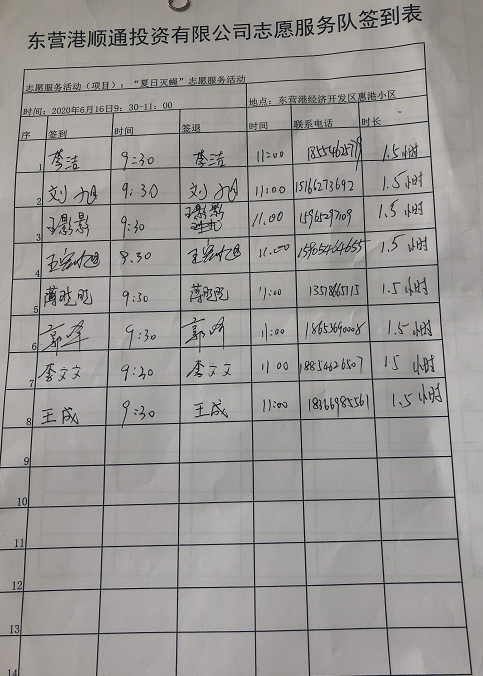 东营港顺通投资有限公司志愿服务队签到表
志愿服务活动（项目）：“夏日灭蝇”志愿服务活动
时间：2020年6月16日9：30-11：00 地点：东营港经济开发区惠港小区
序 签到 时间 签退 时间 联系电话 时长
1 李洁 9:30 李洁 11:00 1.5小时
2 刘旭 9:30 刘旭 11:00 15166273692 1.5小时
3 王影影 9:30 王影影 11:00 15965297109 1.5小时
4 9:30 11:00 15905464655 1.5小时
5 薛晓晓 9:30 薛晓晓 11:00 1.5小时
6 郭峰 9:30 郭峰 11:00 18653690008 1.5小时
7 李文文 9:30 李文文 11:00 18854626507 1.5小时
8 王成 9:30 王成 11:00 18366985561 1.5小时
9
10
11
12
13
14